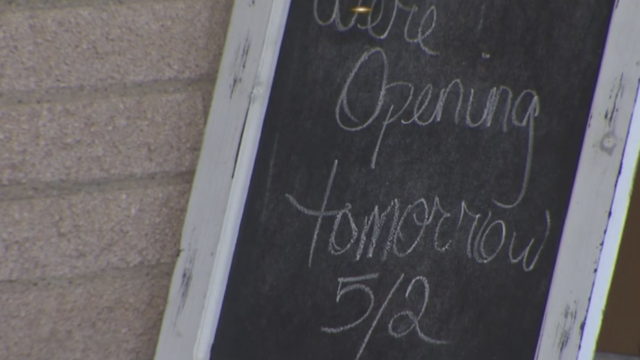 We're
Opening
tomorrow
5/2